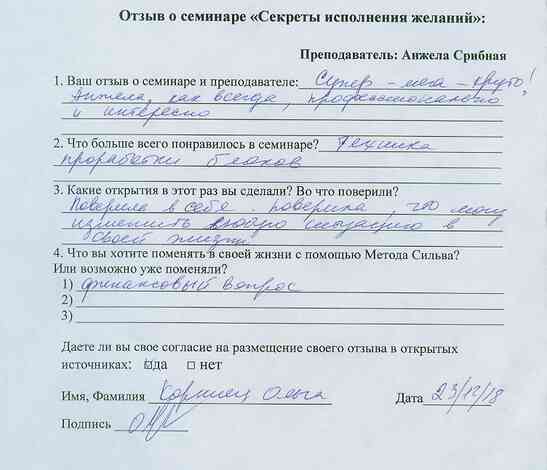 Отзыв о семинаре «Секреты исполнения желаний»:
Преподаватель: Анжела Срибная
1. Ваш отзыв о семинаре и преподавателе: Супер - мега - круто!
Анжела, как всегда, профессионально
и интересно
2. Что больше всего понравилось в семинаре? Техника
проработки блоков
3. Какие открытия в этот раз вы сделали? Во что поверили?
Поверила в себя. поверила, что могу
изменить любую ситуацию в
своей жизни.
4. Что вы хотите поменять в своей жизни с помощью Метода Сильва?
Или возможно уже поменяли?
1) финансовый вопрос
2)
3)
Даете ли вы свое согласие на размещение своего отзыва в открытых
источниках: ☑да □ нет
Имя, Фамилия Ольга
Дата 23/12/18
Подпись